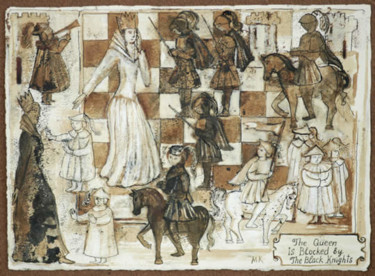 The Queen
is Blocked by
The Black Knights